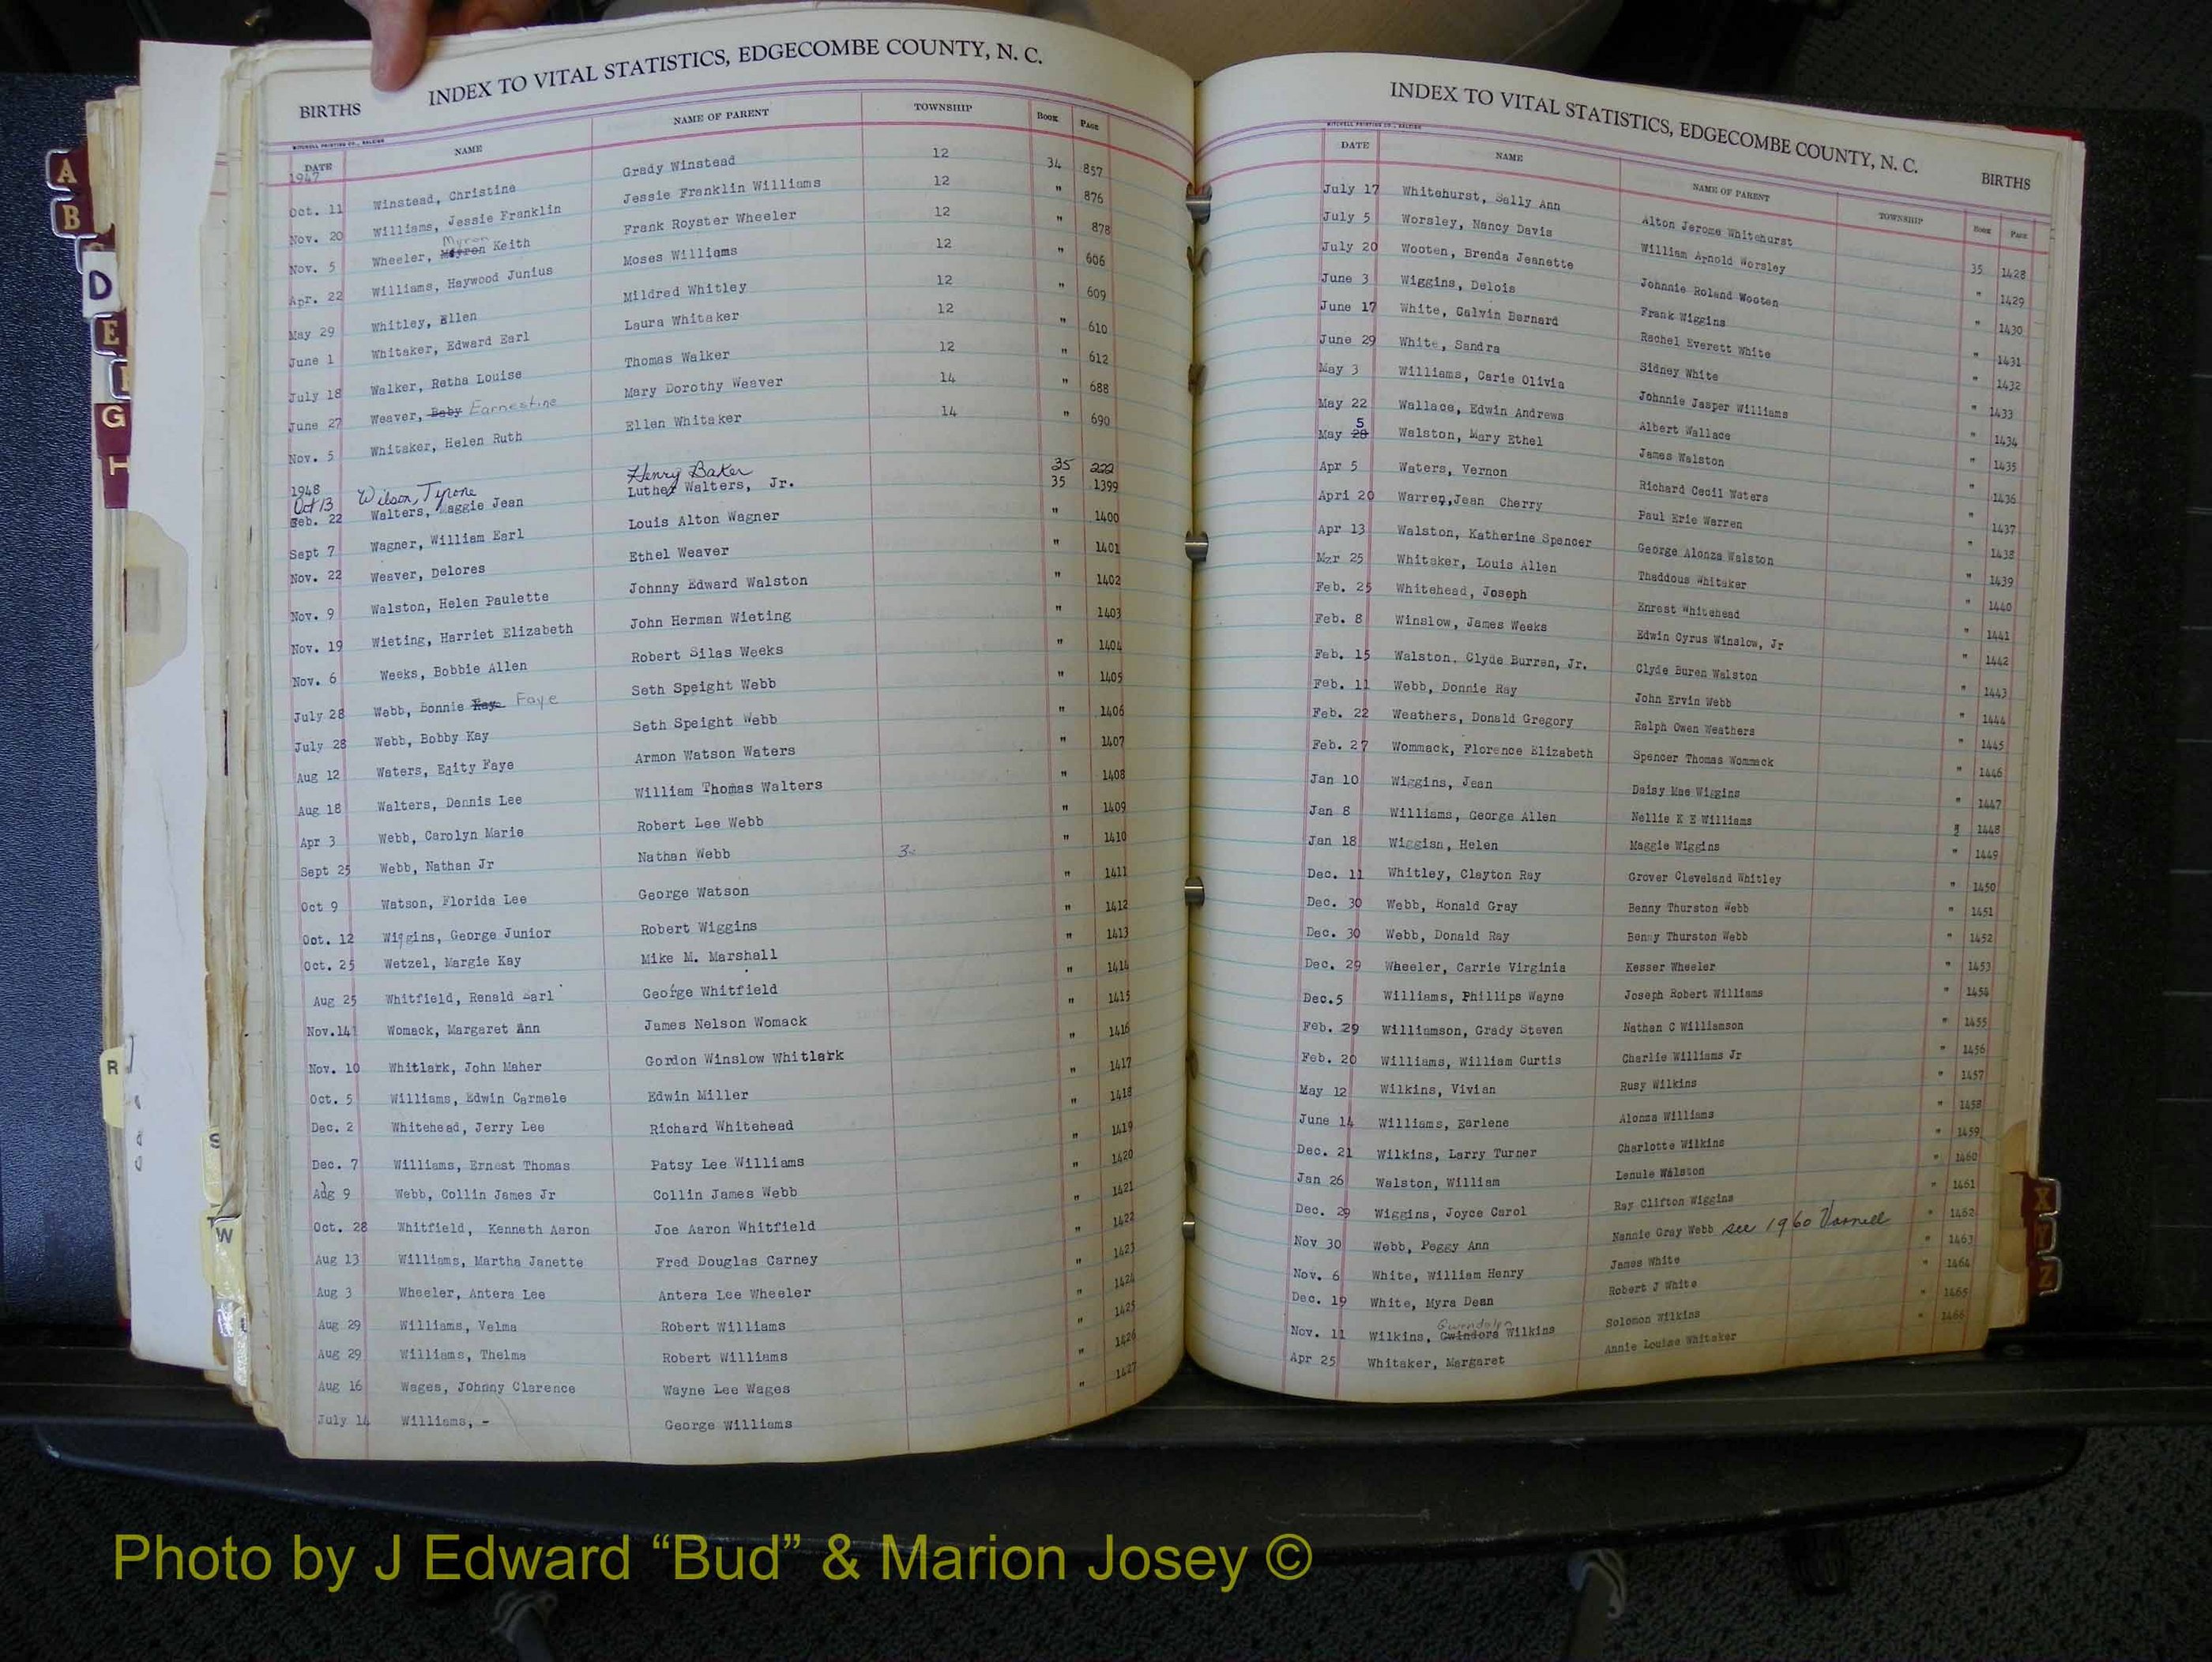 INDEX TO VITAL STATISTICS, EDGECOMBE COUNTY, N. C.
BIRTHS
MITCHELL PRINTING CO., RALEIGH
DATE NAME NAME OF PARENT TOWNSHIP BOOK PAGE
1947
Oct. 11 Winstead, Christine Grady Winstead 12 34 857
Nov. 20 Williams, Jessie Franklin Jessie Franklin Williams 12 " 876
Nov. 5 Wheeler, Myron Keith Frank Royster Wheeler 12 " 878
Apr. 22 Williams, Haywood Junius Moses Williams 12 " 606
May 29 Whitley, Ellen Mildred Whitley 12 " 609
June 1 Whitaker, Edward Earl Laura Whitaker 12 " 610
July 18 Walker, Retha Louise Thomas Walker 12 " 612
June 27 Weaver, Baby Earnestine Mary Dorothy Weaver 14 " 688
Nov. 5 Whitaker, Helen Ruth Ellen Whitaker 14 " 690
1948
Oct 13 Wilson, Tyrone Henry Baker 35 222
Feb. 22 Walters, Maggie Jean Luther Walters, Jr. 35 1399
Sept 7 Wagner, William Earl Louis Alton Wagner " 1400
Nov. 22 Weaver, Delores Ethel Weaver " 1401
Nov. 9 Walston, Helen Paulette Johnny Edward Walston " 1402
Nov. 19 Wieting, Harriet Elizabeth John Herman Wieting " 1403
Nov. 6 Weeks, Bobbie Allen Robert Silas Weeks " 1404
July 28 Webb, Bonnie Kaye Faye Seth Speight Webb " 1405
July 28 Webb, Bobby Kay Seth Speight Webb " 1406
Aug 12 Waters, Edity Faye Armon Watson Waters " 1407
Aug 18 Walters, Dennis Lee William Thomas Walters " 1408
Apr 3 Webb, Carolyn Marie Robert Lee Webb " 1409
Sept 25 Webb, Nathan Jr Nathan Webb 3 " 1410
Oct 9 Watson, Florida Lee George Watson " 1411
Oct. 12 Wiggins, George Junior Robert Wiggins " 1412
Oct. 25 Wetzel, Margie Kay Mike M. Marshall " 1413
Aug 25 Whitfield, Renald Earl George Whitfield " 1414
Nov.14 Womack, Margaret Ann James Nelson Womack " 1415
Nov. 10 Whitlark, John Maher Gordon Winslow Whitlark " 1416
Oct. 5 Williams, Edwin Carmele Edwin Miller " 1417
Dec. 2 Whitehead, Jerry Lee Richard Whitehead " 1418
Dec. 7 Williams, Ernest Thomas Patsy Lee Williams " 1419
Aug 9 Webb, Collin James Jr Collin James Webb " 1420
Oct. 28 Whitfield, Kenneth Aaron Joe Aaron Whitfield " 1421
Aug 13 Williams, Martha Janette Fred Douglas Carney " 1422
Aug 3 Wheeler, Antera Lee Antera Lee Wheeler " 1423
Aug 29 Williams, Velma Robert Williams " 1424
Aug 29 Williams, Thelma Robert Williams " 1425
Aug 16 Wages, Johnny Clarence Wayne Lee Wages " 1426
July 14 Williams, - George Williams " 1427
INDEX TO VITAL STATISTICS, EDGECOMBE COUNTY, N. C.
BIRTHS
MITCHELL PRINTING CO., RALEIGH
DATE NAME NAME OF PARENT TOWNSHIP BOOK PAGE
July 17 Whitehurst, Sally Ann Alton Jerome Whitehurst 35 1428
July 5 Worsley, Nancy Davis William Arnold Worsley " 1429
July 20 Wooten, Brenda Jeanette Johnnie Roland Wooten " 1430
June 3 Wiggins, Delois Frank Wiggins " 1431
June 17 White, Calvin Bernard Rachel Everett White " 1432
June 29 White, Sandra Sidney White " 1433
May 3 Williams, Carie Olivia Johnnie Jasper Williams " 1434
May 22 Wallace, Edwin Andrews Albert Wallace " 1435
May 28 5 Walston, Mary Ethel James Walston " 1436
Apr 5 Waters, Vernon Richard Cecil Waters " 1437
Apri 20 Warren,Jean Cherry Paul Erie Warren " 1438
Apr 13 Walston, Katherine Spencer George Alonza Walston " 1439
Mzr 25 Whitaker, Louis Allen Thaddous Whitaker " 1440
Feb. 25 Whitehead, Joseph Enrest Whitehead " 1441
Feb. 8 Winslow, James Weeks Edwin Cyrus Winslow, Jr " 1442
Feb. 15 Walston, Clyde Burren, Jr. Clyde Buren Walston " 1443
Feb. 11 Webb, Donnie Ray John Ervin Webb " 1444
Feb. 22 Weathers, Donald Gregory Ralph Owen Weathers " 1445
Feb. 27 Wommack, Florence Elizabeth Spencer Thomas Wommack " 1446
Jan 10 Wiggins, Jean Daisy Mae Wiggins " 1447
Jan 8 Williams, George Allen Nellie K E Williams " 1448
Jan 18 Wiggisn, Helen Maggie Wiggins " 1449
Dec. 11 Whitley, Clayton Ray Grover Cleveland Whitley " 1450
Dec. 30 Webb, Ronald Gray Benny Thurston Webb " 1451
Dec. 30 Webb, Donald Ray Benny Thurston Webb " 1452
Dec. 29 Wheeler, Carrie Virginia Kesser Wheeler " 1453
Dec.5 Williams, Phillips Wayne Joseph Robert Williams " 1454
Feb. 29 Williamson, Grady Steven Nathan C Williamson " 1455
Feb. 20 Williams, William Curtis Charlie Williams Jr " 1456
May 12 Wilkins, Vivian Rusy Wilkins " 1457
June 14 Williams, Earlene Alonza Williams " 1458
Dec. 21 Wilkins, Larry Turner Charlotte Wilkins " 1459
Jan 26 Walston, William Lenule Walston " 1460
Dec. 29 Wiggins, Joyce Carol Ray Clifton Wiggins " 1461
Nov 30 Webb, Peggy Ann Nannie Gray Webb see 1960 Varnell " 1462
Nov. 6 White, William Henry James White " 1463
Dec. 19 White, Myra Dean Robert J White " 1464
Nov. 11 Wilkins, Gwindora Gwendolyn Wilkins Solomon Wilkins " 1465
Apr 25 Whitaker, Margaret Annie Louise Whitaker " 1466
A
B
D
E
G
H
R
S
T
W
X
Y
Z
Photo by J Edward “Bud” & Marion Josey ©